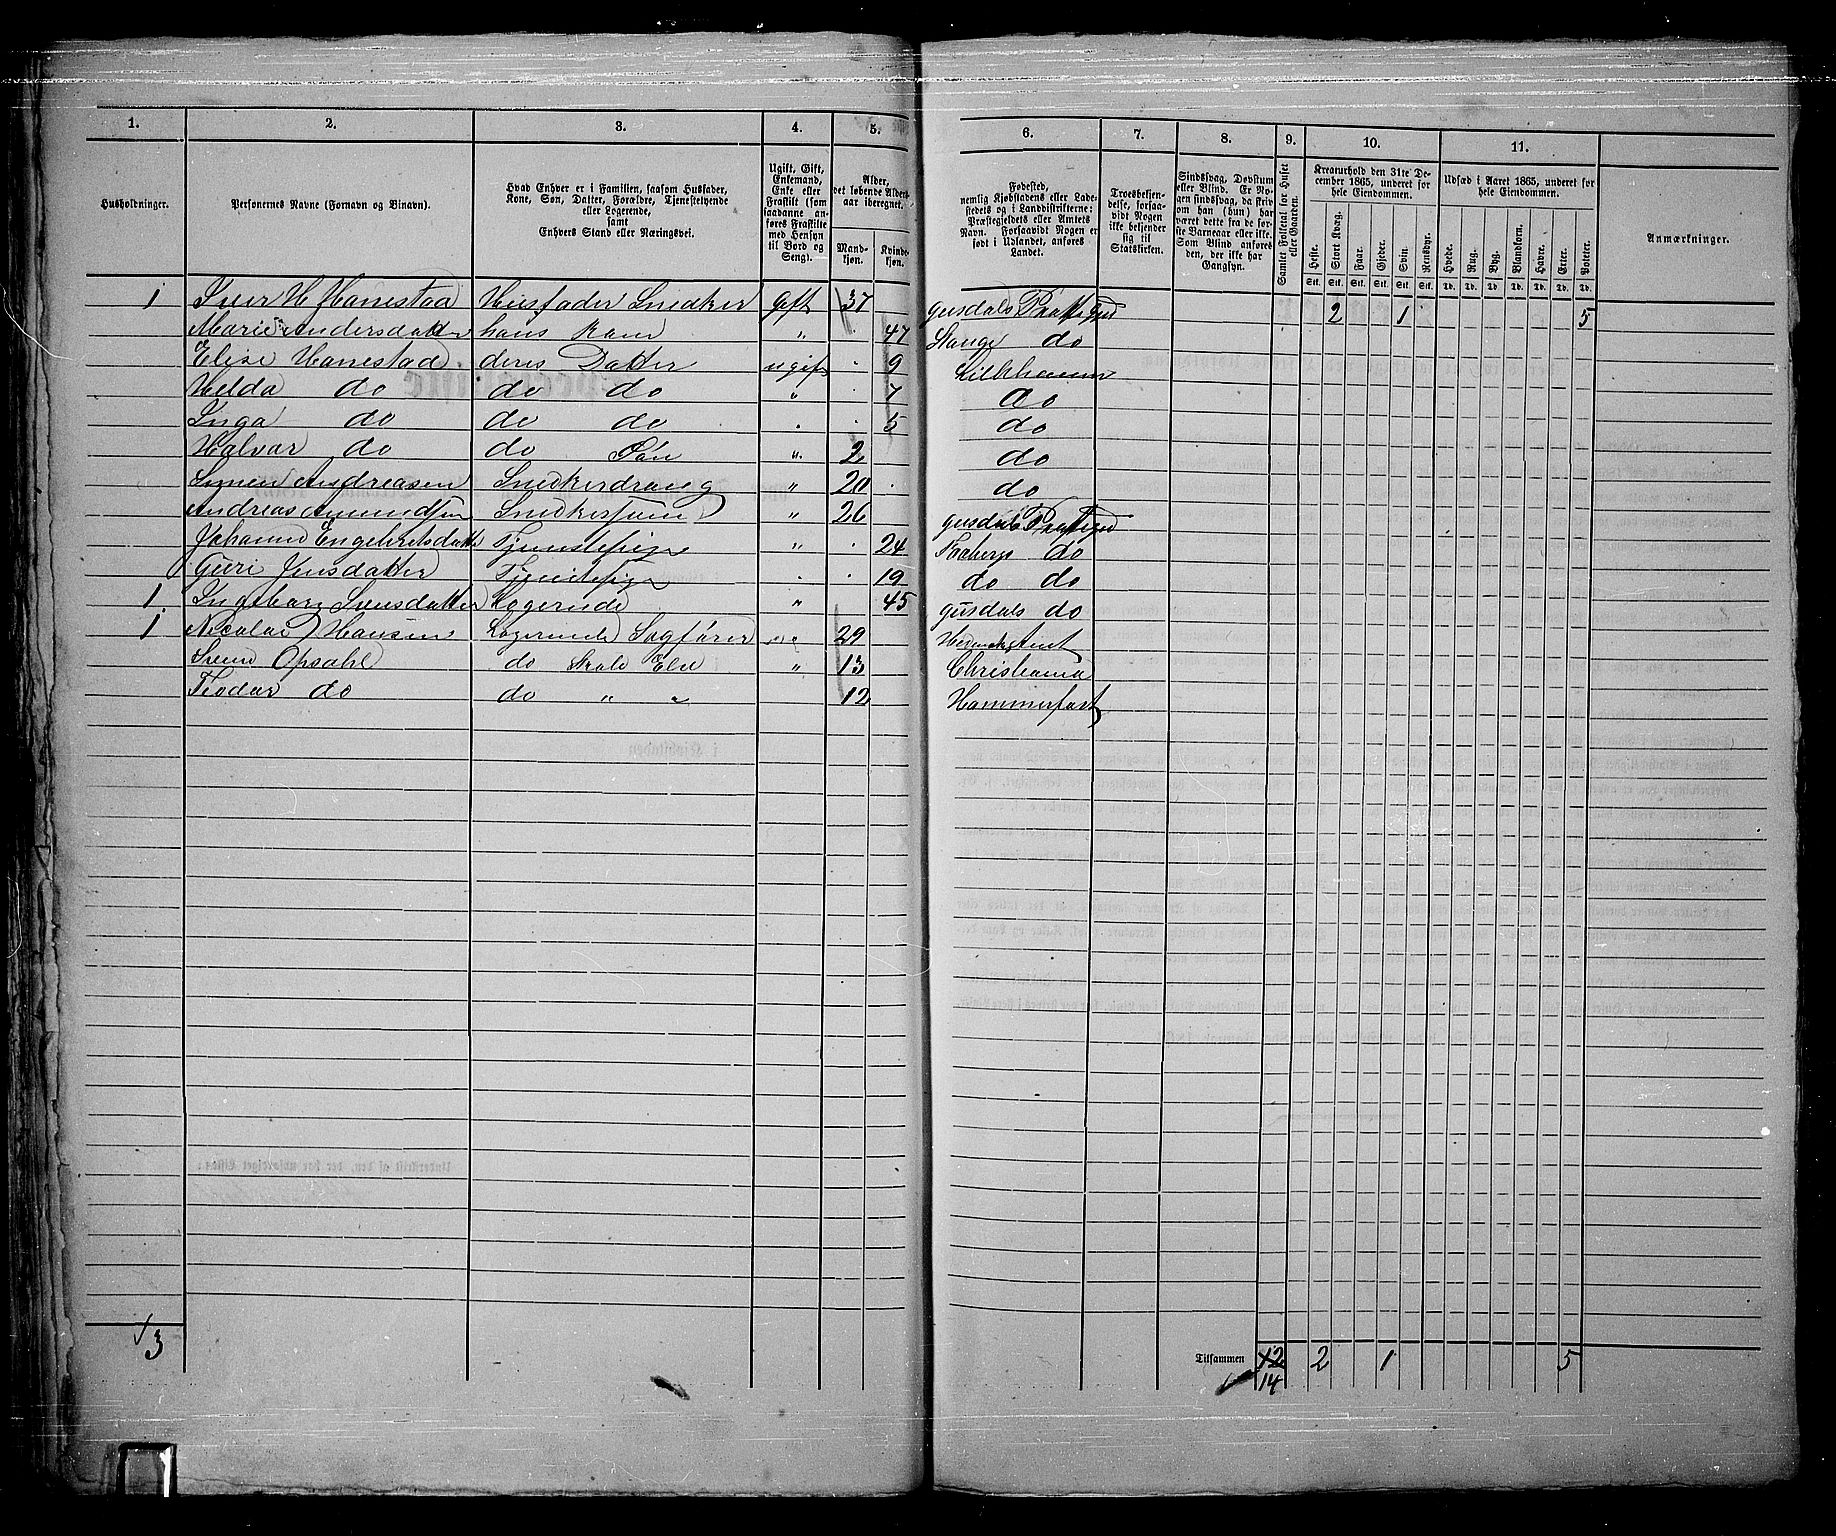 1. 2. 3. 4. 5. 6. 7. 8. 9. 10. 11.
Husholdninger.
Personernes Navne (Fornavn og Binavn).
Hvad Enhver er i Familien, saasom Husfader,
Kone, Søn, Datter, Forældre, Tjenestetyende
eller Logerende,
samt
Enhvers Stand eller Næringsvei.
Ugift, Gift,
Enkemand,
Enke eller
Fraskilt (som
saadanne an-
føres Fraskilte
med Hensyn
til Bord og
Seng).
Alder,
det løbende Alders-
aar iberegnet.
Mand-
kjøn.
Kvinde-
kjøn.
Fødested,
nemlig Kjøbstadens eller Lade-
stedets og i Landdistrikterne:
Præstegjeldets eller Amtets
Navn. Forsaavidt Nogen er
født i Udlandet, anføres
Landet.
Troesbekjen-
delse, forsaa-
vidt Nogen
ikke bekjender
sig til
Statskirken.
Sindssvag, Døvstum
eller Blind. Er No-
gen sindssvag, da skriv
om han (hun) har
været dette fra de før-
ste Barneaar eller ikke.
Som Blind anføres
den, der ikke har
Gangsyn.
Samlet Folketal for Huset
eller Gaarden.
Kreaturhold den 31te De-
cember 1865, underet for
hele Eiendommen.
Heste. Stort Kvæg. Faar. Gjeder. Svin. Rensdyr.
Stk. Stk. Stk. Stk. Stk. Stk.
Udsæd i Aaret 1865, underet for
hele Eiendommen.
Hvede. Rug. Byg. Blandkorn. Havre. Erter. Poteter.
Td. Td. Td. Td. Td. Td. Td.
Anmærkninger.
1 Iver H Hanestad Husfader Snedker Gift 37 Gusdals Præstegjed 2 1 5
Marie Andersdatter hans Kone " 47 Stange do
Elise Hanestad deres Datter ugift 9 Lillehamm
Helda do do do " 7 do
Inga do do do 5 do
Halvar do do Søn " 2 do
Simen Andreasen Snedkerdræng " 20 do
Andreas Amundsen Snedkersvend " 26 Gusdals Præstegjed
Johanne Engebretsdatter Tjenestepige " 24 Faabergs do
Guri Jensdatter Tjenestepige 19 do do
1 Ingeborg Svensdatter Logerende " 45 Gusdals do
1 Nicolai Hansen Logerende Sagfører " 29 Hedemarkens Amt
Svend Opsahl do Skole Elev " 13 Christiania
Teodor do do " " 12 Hammerfast
3
Tilsammen 12 2 1 5
14